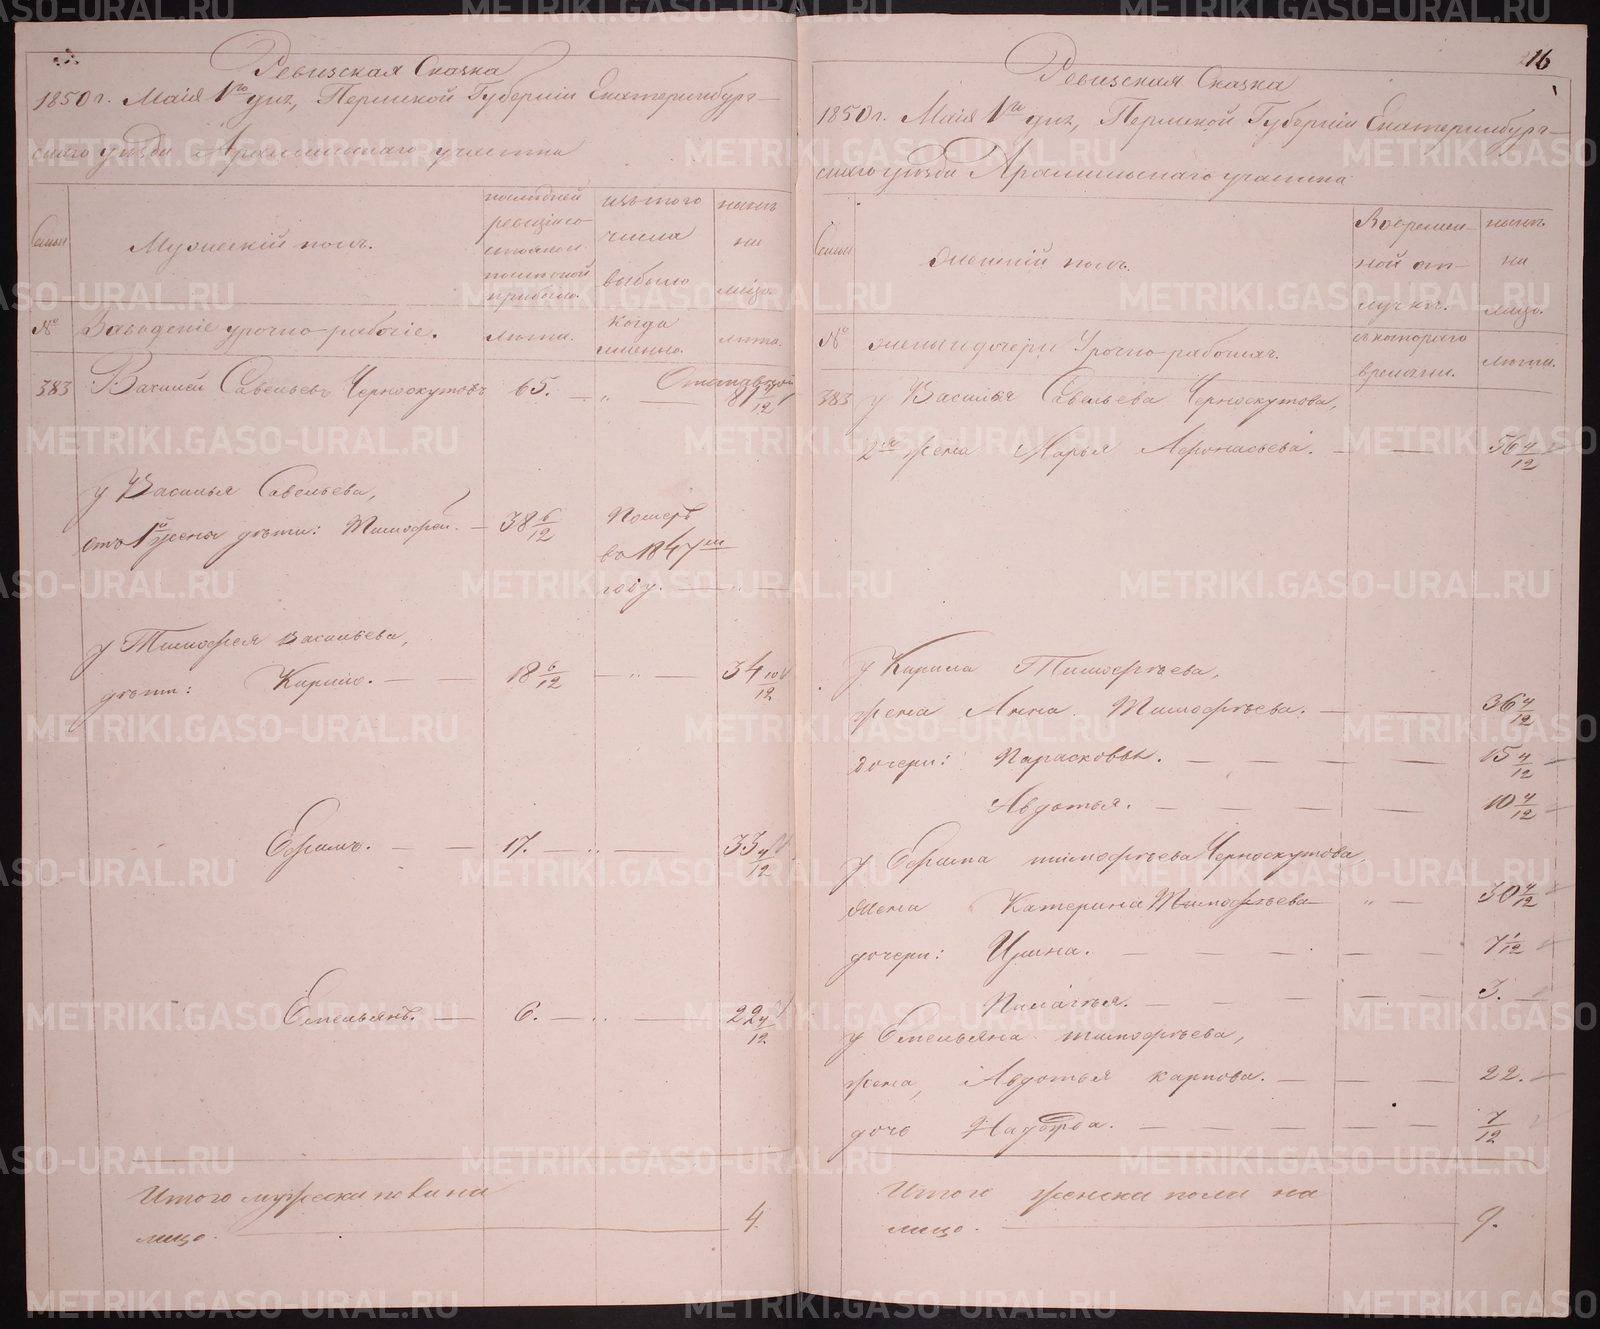 Ревизская Сказка
1850 г. Маія 1го дня, Пермской Губерніи Екатеринбург-
скаго уѣзда Арамильскаго участка
Семьи
Мужескій полъ.
последней
ревизіи со-
стояло и
после оной
прибыло.
изъ того
числа
выбыло
нынѣ
на
лицо.
№
Заводскіе урочно-рабочіе.
лѣта.
когда
именно.
лѣта.
383 Василей Савельевъ Черноскутовъ 65. — „ — Отставной
81 4/12
у Василья Савельева,
отъ 1й жены дѣти: Тимофей. — 38 6/12 Померъ
во 1847мъ
году. — „ —
у Тимофея Васильева,
дѣти: Кирило. — — 18 6/12 — „ — 34 10/12
Ефимъ. — — 17. — „ — 33 4/12
Емельянъ. — 6. — „ — 22 4/12
Итого мужеска пола на
лицо. 4.
16
Ревизская Сказка
1850 г. Маія 1го дня, Пермской Губерніи Екатеринбург-
скаго уѣзда Арамильскаго участка
Семьи
Женскій полъ.
Во времен-
ной от-
лучкѣ.
нынѣ
на
лицо.
№
жены и дочери Урочно-рабочихъ.
съ котораго
времени.
лѣта.
383 у Василья Савельева Черноскутова,
2я жена Марья Афонасьева. — — 56 4/12
у Кирила Тимофѣева,
жена Анна Тимофѣева. — — — 36 4/12
дочери: Парасковья. — — — — — 15 4/12
Авдотья. — — — — — 10 4/12
у Ефима тимофѣева Черноскутова,
жена Катерина Тимофѣева — „ — 30 4/12
дочери: Ирина. — — — — — 7 1/12
Палагѣя. — — — — — 3.
у Емельяна тимофѣева,
жена, Авдотья карпова. — — — 22.
дочь Надѣжда. — — — — — 7/12
Итого женска пола на
лицо. 9.
METRIKI.GASO-URAL.RU